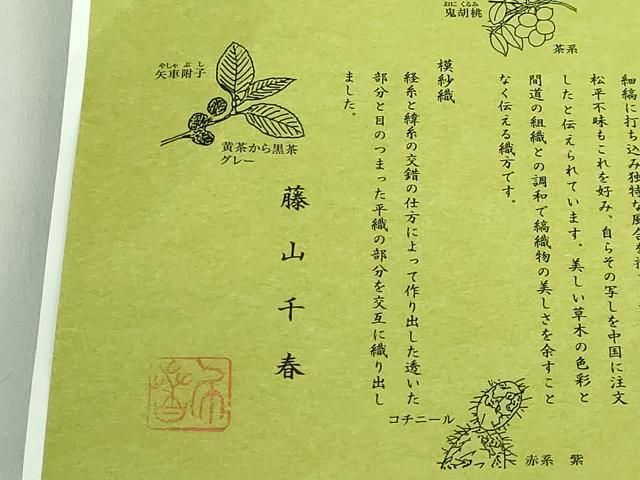 鬼胡桃
おにくるみ
茶系
細縞に打ち込み独特な風合を
松平不昧もこれを好み、自らその写しを中国に注文
したと伝えられています。美しい草木の色彩と
間道の組織との調和で縞織物の美しさを余すこと
なく伝える織方です。
模紗織
経糸と緯糸の交錯の仕方によって作り出した透いた
部分と目のつまった平織の部分を交互に織り出し
ました。
矢車附子
やしゃぶし
黄茶から黒茶
グレー
藤山千春
コチニール
赤系 紫